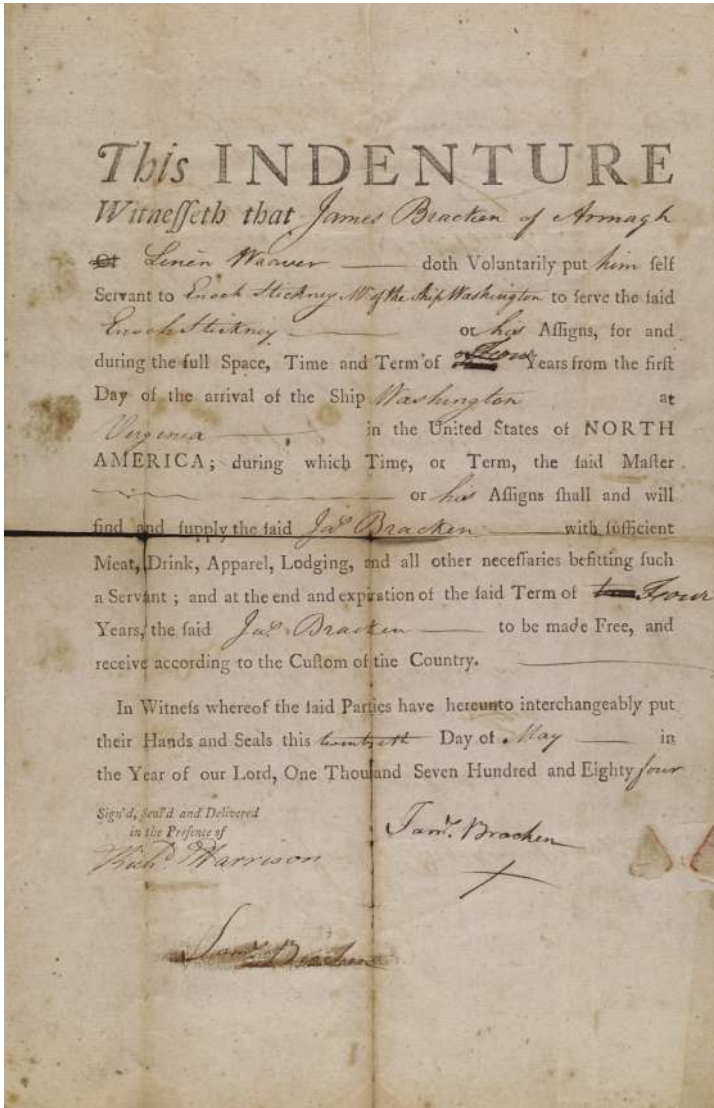 This INDENTURE
Witneſſeth that James Bracken of Armagh
Linen Waver doth Voluntarily put him ſelf
Servant to Enoch Stickney Mr of the Ship Washington to ſerve the ſaid
Enoch Stickney or his Aſſigns, for and
during the full Space, Time and Term of Four Years from the firſt
Day of the arrival of the Ship Washington at
Virginia in the United States of NORTH
AMERICA; during which Time, or Term, the ſaid Maſter
or his Aſſigns ſhall and will
find and ſupply the ſaid Jas Bracken with ſufficient
Meat, Drink, Apparel, Lodging, and all other neceſſaries befitting ſuch
a Servant; and at the end and expiration of the ſaid Term of Four
Years, the ſaid Jas Bracken to be made Free, and
receive according to the Cuſtom of the Country.
In Witneſs whereof the ſaid Parties have hereunto interchangeably put
their Hands and Seals this Day of May in
the Year of our Lord, One Thouſand Seven Hundred and Eighty four
Sign'd, Seal'd and Delivered
in the Preſence of
Richd Harrison
Jams. Bracken
Jams. Bracken